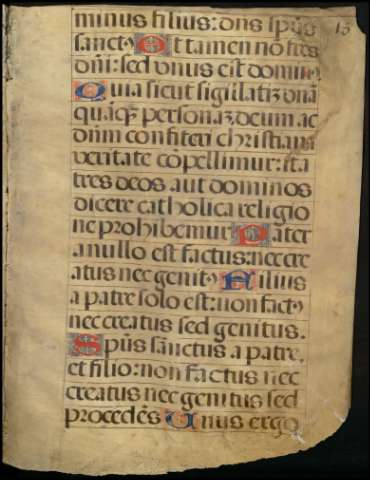 minus filius: dñs spũs
sanctꝰ Et tamen nõ tres
dñi: sed vnus est dominꝰ
Quia sicut sigillatĩ vnã
quãqꝫ personaꝫ deum ac
dñm confiteri christiana
veritate cõpellimur: ita
tres deos aut dominos
dicere catholica religio
ne prohibemur Pater
a nullo est factus: nec cre
atus nec genitꝰ Filius
a patre solo est: non factꝰ
nec creatus sed genitus.
Spũs sanctus a patre,
et filio: non factus nec
creatus nec genitus sed
procedẽs Unus ergo
15